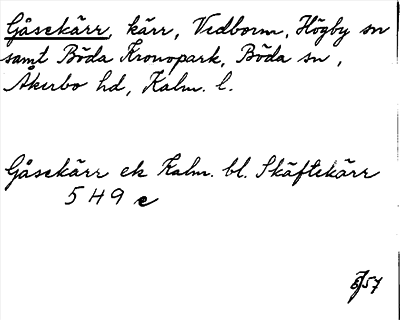 Gåsekärr, kärr, Vedborm, Högby sn
samt Böda Kronopark, Böda sn,
Åkerbo hd, Kalm. l.
Gåsekärr ek Kalm. bl. Skäftekärr
5 H 9 e
57